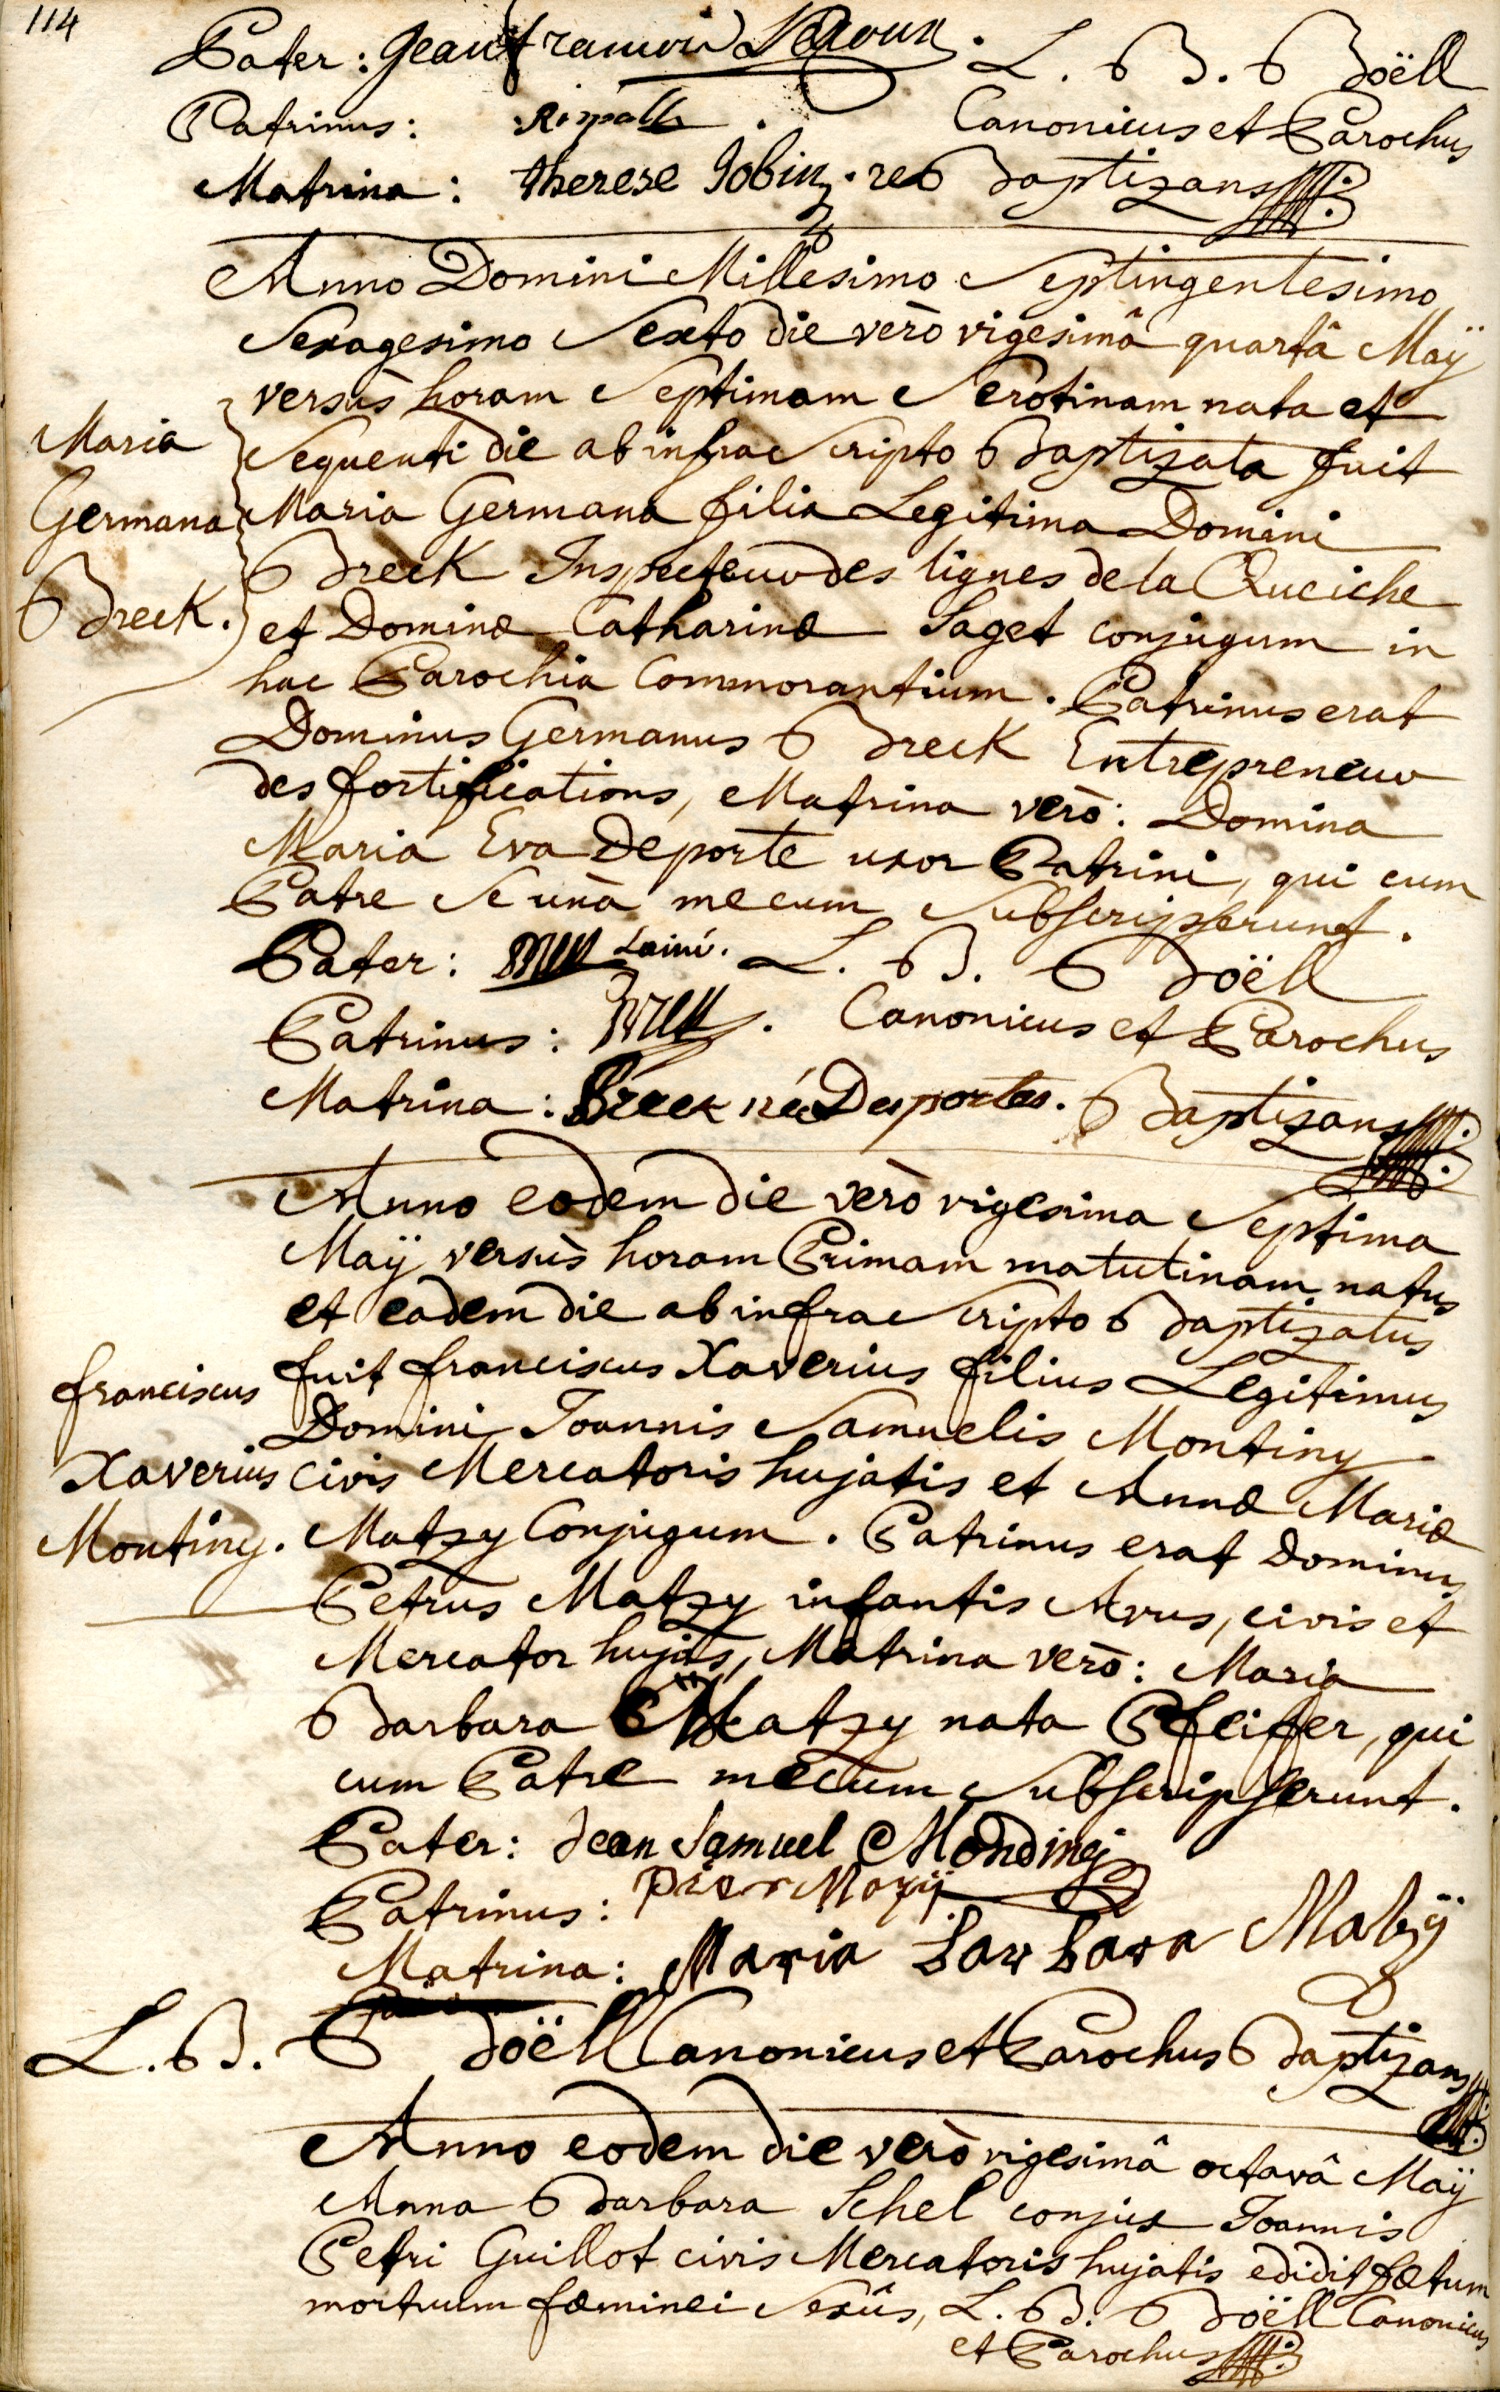 114
Pater: Jean francois Leroux. L. B. Boëll
Patrinus: Canonicus et Parochus
Matrina: therese Jobin. Baptizans
Anno Domini Millesimo Septingentesimo
Sexagesimo Sexto die verò vigesimâ quartâ Maÿ
versùs horam Septimam Serotinam nata et
Sequenti die ab infra Scripto Baptizata fuit
Maria Germana filia Legitima Domini
Maria
Germana
Breck.
Breck Inspecteur des lignes de la Queiche
et Dominæ Catharinæ Saget conjugum in
hac Parochia Commorantium. Patrinus erat
Dominus Germanus Breck Entrepreneur
des fortifications, Matrina verò: Domina
Maria Eva Deporte uxor Patrini, qui cum
Patre Se unà mecum Subscripserunt.
Pater: Breck Lainé. L. B. Boëll
Patrinus: Breck. Canonicus et Parochus
Matrina: Breck née Desportes. Baptizans
Anno eodem die verò vigesima Septima
Maÿ versùs horam Primam matutinam natus
et eadem die ab infra Scripto Baptizatus
fuit franciscus Xaverius filius Legitimus
Domini Joannis Samuelis Montiny
franciscus
Xaverius
Montiny.
civis Mercatoris hujatis et Annæ Mariæ
Matzy Conjugum. Patrinus erat Dominus
Petrus Matzy infantis Avus, civis et
Mercator hujas, Matrina verò: Maria
Barbara Matzy nata Pfeiffer, qui
cum Patre mecum Subscripserunt.
Pater: Jean Samuel Mondinej
Patrinus: Pier Mazij
Matrina: Maria Barbara Matzÿ
L. B. Boëll Canonicus et Parochus Baptizans
Anno eodem die verò vigesimâ octavâ Maÿ
Anna Barbara Schel conjux Joannis
Petri Guillot civis Mercatoris hujatis edidit fætum
mortuum fæminei Sexûs, L. B. Boëll Canonicus
et Parochus